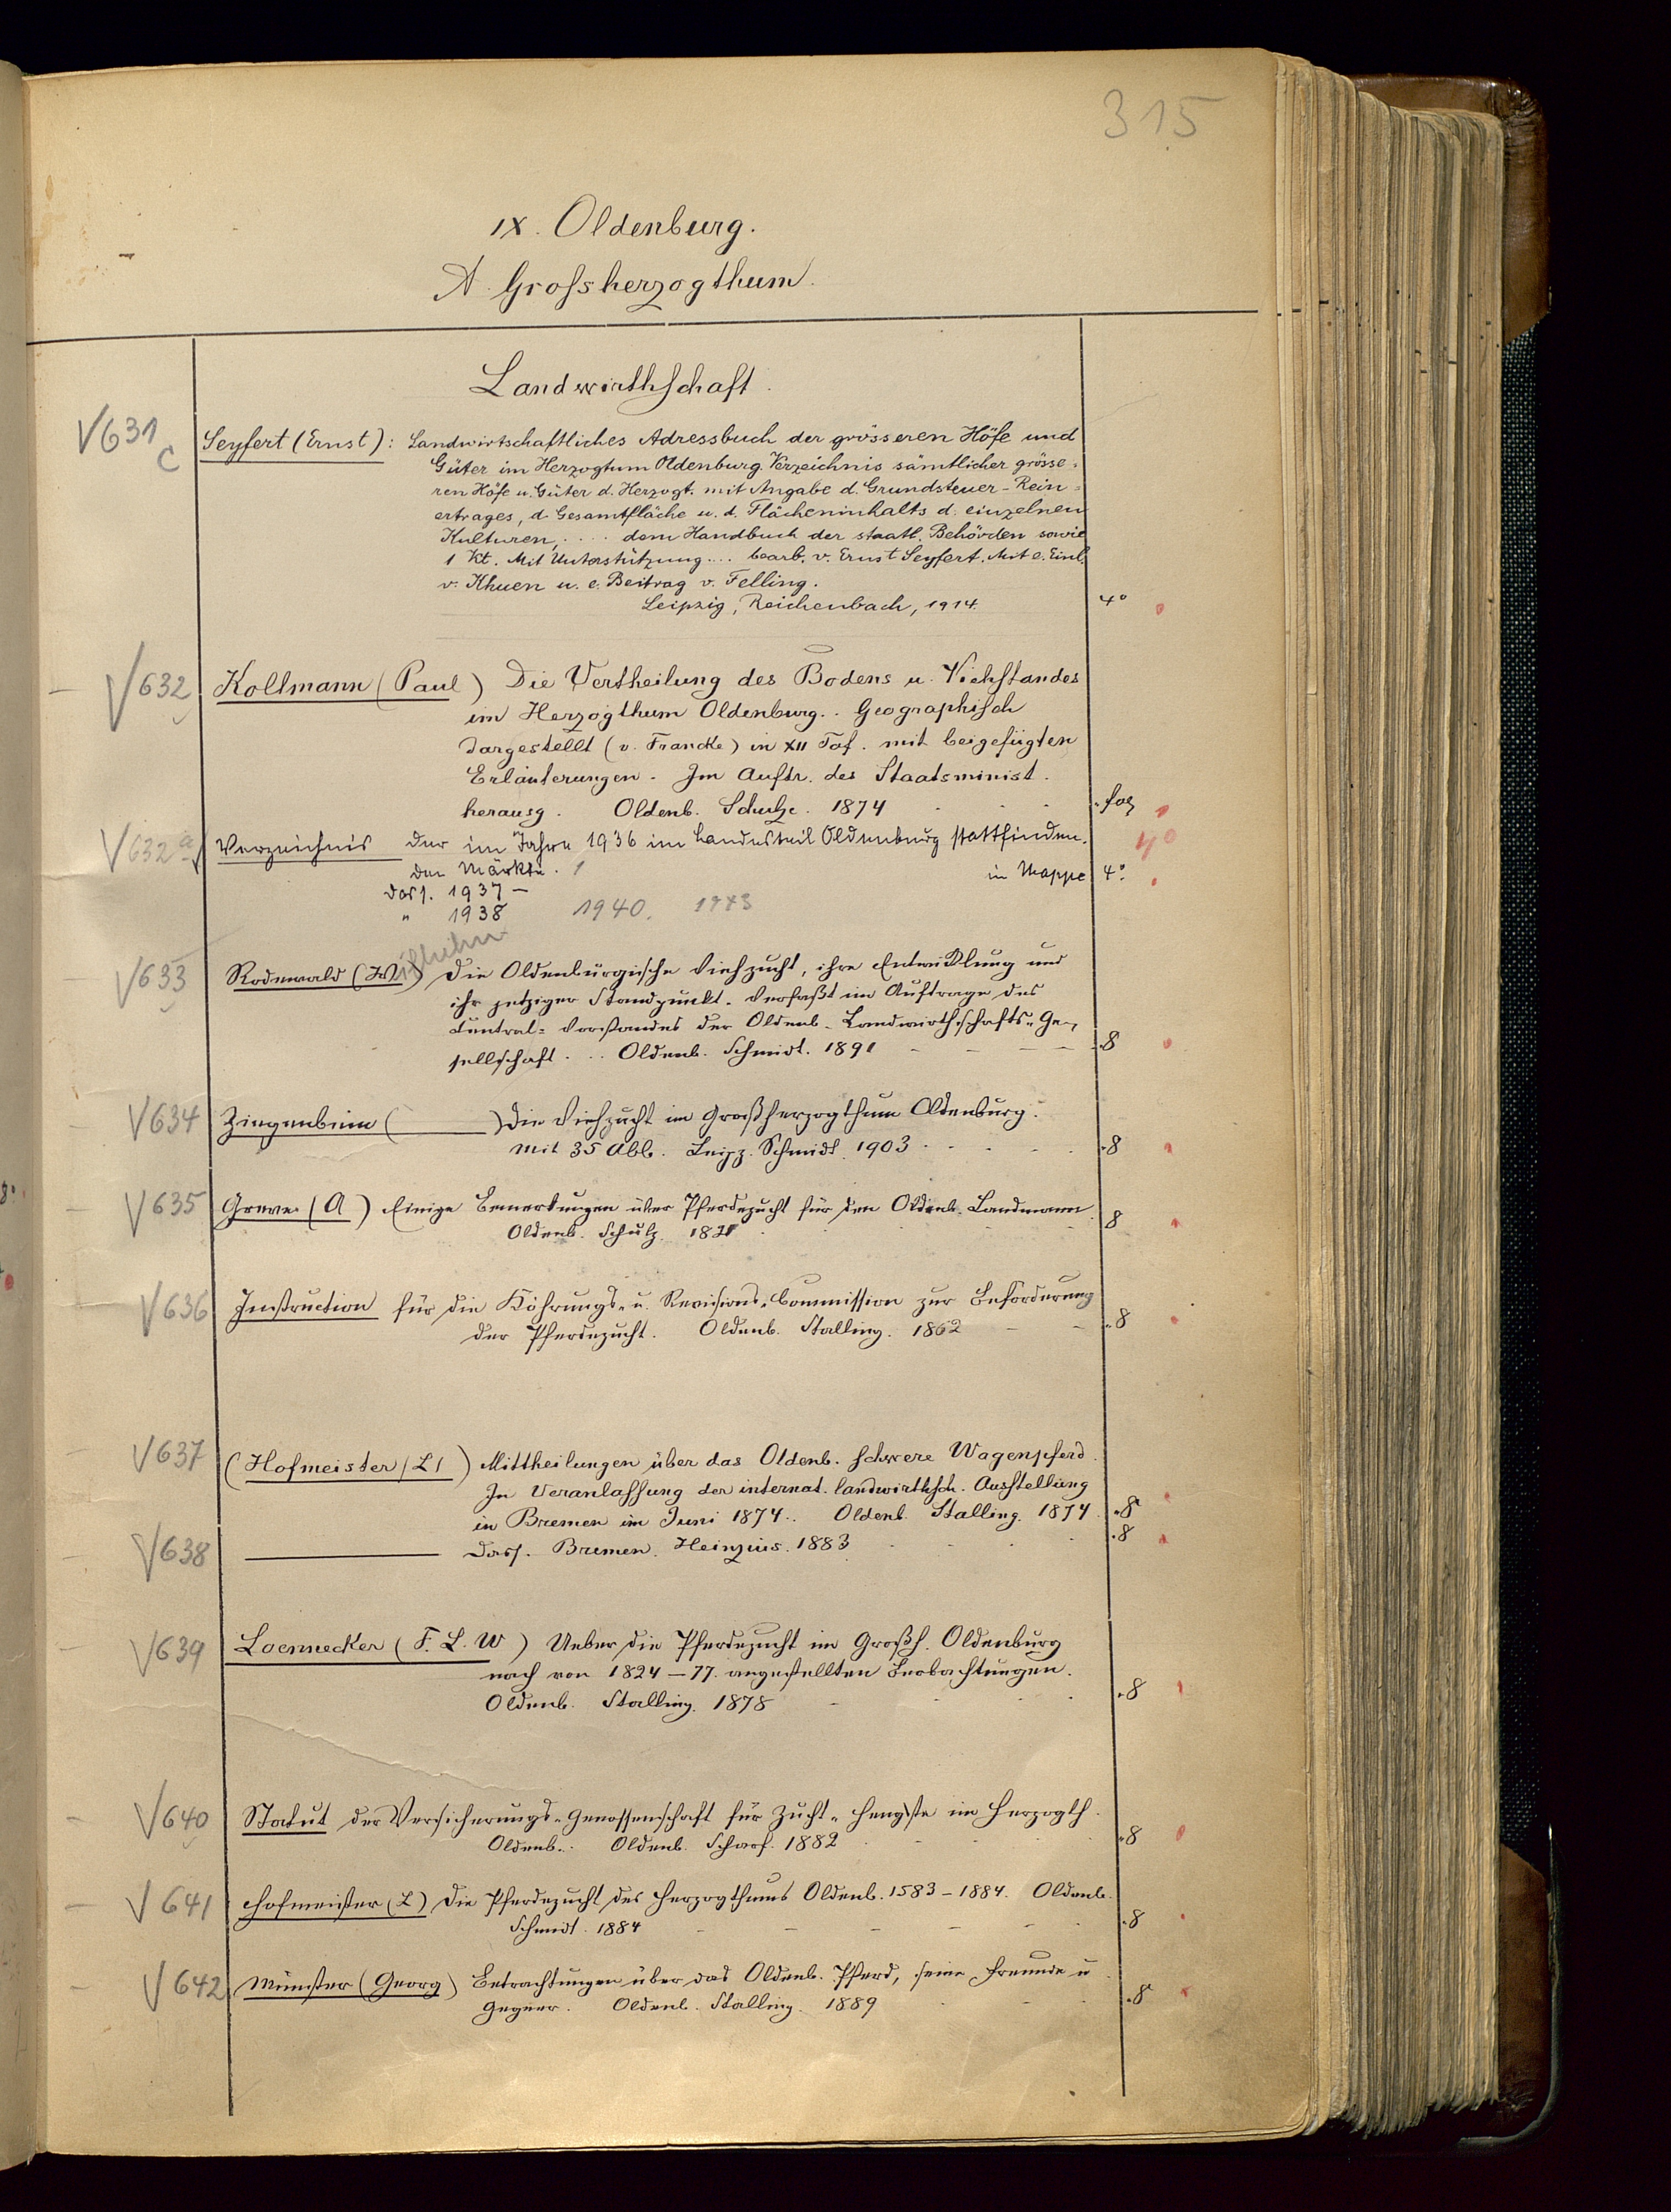 315
IX. Oldenburg.
A. Grossherzogthum.
Landwirthschaft.
V631c Seyfert (Ernst): Landwirtschaftliches Adressbuch der grösseren Höfe und
Güter im Herzogtum Oldenburg. Verzeichnis sämtlicher grösse=
ren Höfe u. Güter d. Herzogt. mit Angabe d. Grundsteuer-Rein=
ertrages, d. Gesamtfläche u. d. Flächeninhalts d. einzelnen
Kulturen, .... dem Handbuch der staatl. Behörden sowie
1 Kt. Mit Unterstützung ... bearb. v. Ernst Seyfert. Mit e. Einl.
v. Khuen u. e. Beitrag v. Felling.
Leipzig, Reichenbach, 1914. 4°
V632 Kollmann (Paul) Die Vertheilung des Bodens u. Viehstandes
im Herzogthum Oldenburg.. Geographisch
dargestellt (v. Francke) in XII Taf. mit beigefügten
Erläuterungen. Im Auftr. des Staatsminist.
herausg. Oldenb. Schulze. 1874 fol
V632a Verzeichnis der im Jahre 1936 im Landesteil Oldenburg stattfinden- 4°
den Märkte. 1 in Mappe 4°.
dass. 1937 –
" 1938 1940. 1943
V633 Rodewald (Wilhelm) Die Oldenburgische Viehzucht, ihre Entwicklung und
ihr jetziger Standpunkt. Verfaßt im Auftrage des
Central-Vorstandes der Oldenb. Landwirthschafts-Ge-
sellschaft... Oldenb. Schmidt. 1891 8
V634 Ziegenbein ( ) Die Viehzucht im Großherzogthum Oldenburg.
Mit 35 Abb. Leipz. Schmidt. 1903 8
V635 Greve (A) Einige Bemerkungen über Pferdezucht für den Oldenb. Landmann
Oldenb. Schulz. 8
V636 Instruction für die Köhrungs- u. Revisions-Commission zur Beförderung
der Pferdezucht. Oldenb. Stalling. 1862 8
V637 (Hofmeister (L)) Mittheilungen über das Oldenb. schwere Wagenpferd.
In Veranlassung der internat. landwirthsch. Ausstellung
in Bremen im Juni 1874.. Oldenb. Stalling. 1874. 8
V638 ——— dass. Bremen. Heinzius. 1883 8
V639 Loennecker (F. L. W) Ueber die Pferdezucht im Großh. Oldenburg
nach von 1824–77. angestellten Beobachtungen.
Oldenb. Stalling. 1878 8
V640 Statut der Versicherungs-Genossenschaft für Zucht-Hengste im Herzogth.
Oldenb. Oldenb. Scharf. 1882 8
V641 Hofmeister (L) Die Pferdezucht des Herzogthums Oldenb. 1583–1884. Oldenb.
Schmidt. 1884 8
V642 Münster (Georg) Betrachtungen über das Oldenb. Pferd, seine Freunde u
Gegner. Oldenb. Stalling. 1889 8